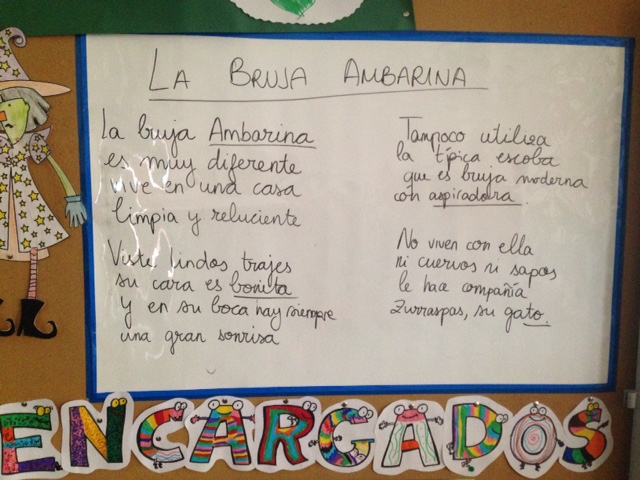 LA BRUJA AMBARINA
La bruja Ambarina
es muy diferente
vive en una casa
limpia y reluciente
Viste lindos trajes
su cara es bonita
y en su boca hay siempre
una gran sonrisa
Tampoco utiliza
la típica escoba
que es bruja moderna
con aspiradora.
No viven con ella
ni cuervos ni sapos
le hace compañía
Zurraspas, su gato.
ENCARGADOS